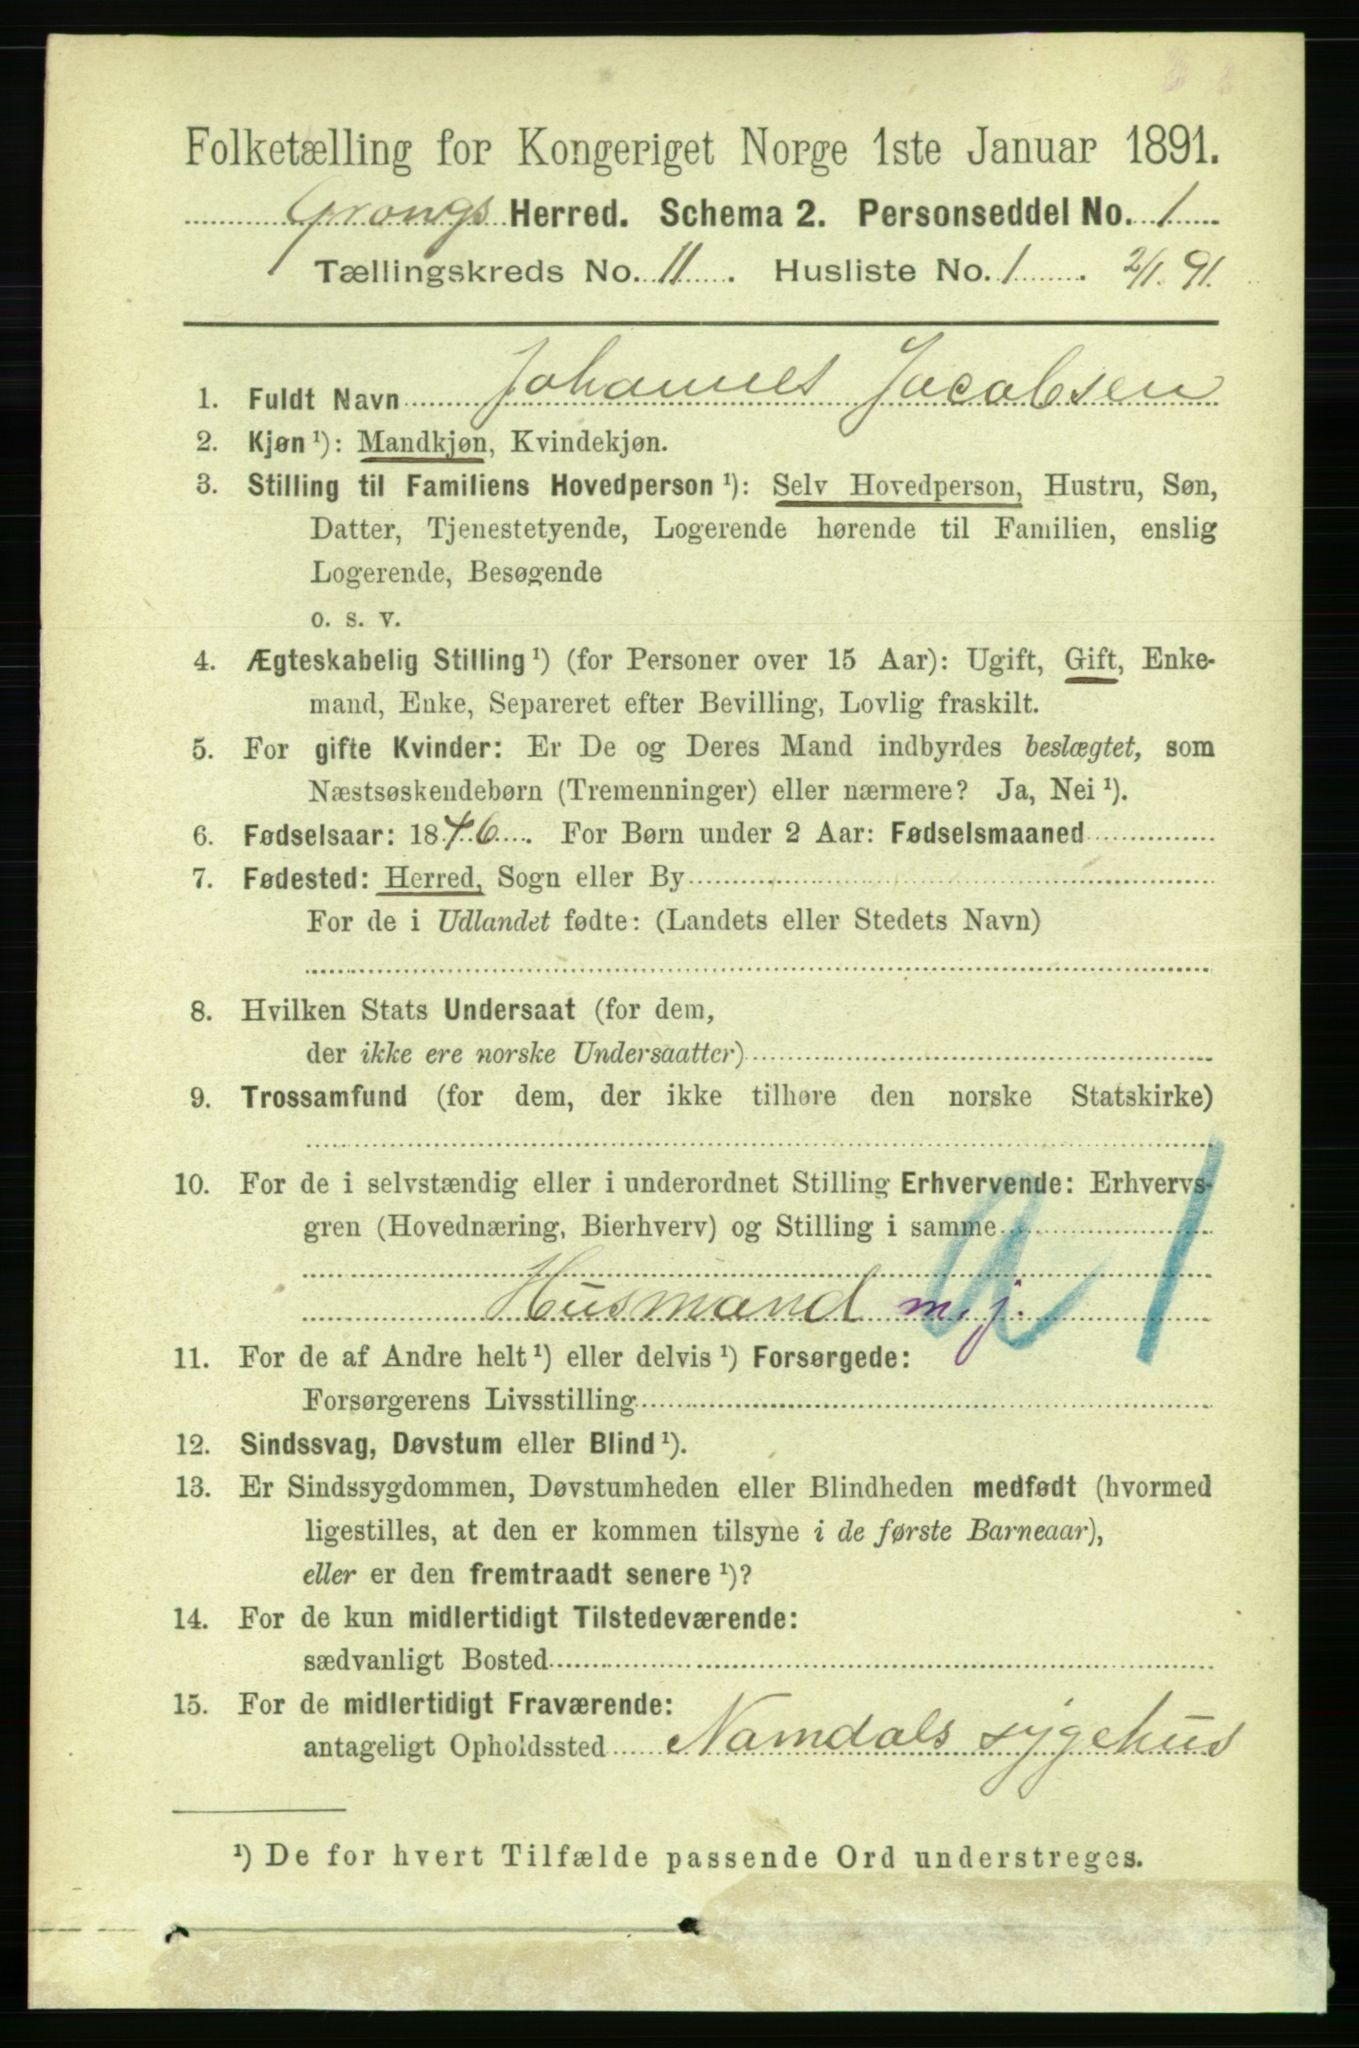 Folketælling for Kongeriget Norge 1ste Januar 1891.
Grongs Herred. Schema 2. Personseddel No. 1
Tællingskreds No. 11. Husliste No. 1. 2/1. 91.
1. Fuldt Navn Johannes Jacobsen
2. Kjøn ¹): Mandkjøn, Kvindekjøn.
3. Stilling til Familiens Hovedperson ¹): Selv Hovedperson, Hustru, Søn,
Datter, Tjenestetyende, Logerende hørende til Familien, enslig
Logerende, Besøgende
o. s. v.
4. Ægteskabelig Stilling ¹) (for Personer over 15 Aar): Ugift, Gift, Enke-
mand, Enke, Separeret efter Bevilling, Lovlig fraskilt.
5. For gifte Kvinder: Er De og Deres Mand indbyrdes beslægtet, som
Næstsøskendebørn (Tremenninger) eller nærmere? Ja, Nei ¹).
6. Fødselsaar: 1846. For Børn under 2 Aar: Fødselsmaaned
7. Fødested: Herred, Sogn eller By
For de i Udlandet fødte: (Landets eller Stedets Navn)
8. Hvilken Stats Undersaat (for dem,
der ikke ere norske Undersaatter)
9. Trossamfund (for dem, der ikke tilhøre den norske Statskirke)
10. For de i selvstændig eller i underordnet Stilling Erhvervende: Erhvervs-
gren (Hovednæring, Bierhverv) og Stilling i samme
Husmand m. j.
11. For de af Andre helt ¹) eller delvis ¹) Forsørgede:
Forsørgerens Livsstilling
12. Sindssvag, Døvstum eller Blind ¹).
13. Er Sindssygdommen, Døvstumheden eller Blindheden medfødt (hvormed
ligestilles, at den er kommen tilsyne i de første Barneaar),
eller er den fremtraadt senere ¹)?
14. For de kun midlertidigt Tilstedeværende:
sædvanligt Bosted
15. For de midlertidigt Fraværende:
antageligt Opholdssted Namdals sygehus
¹) De for hvert Tilfælde passende Ord understreges.